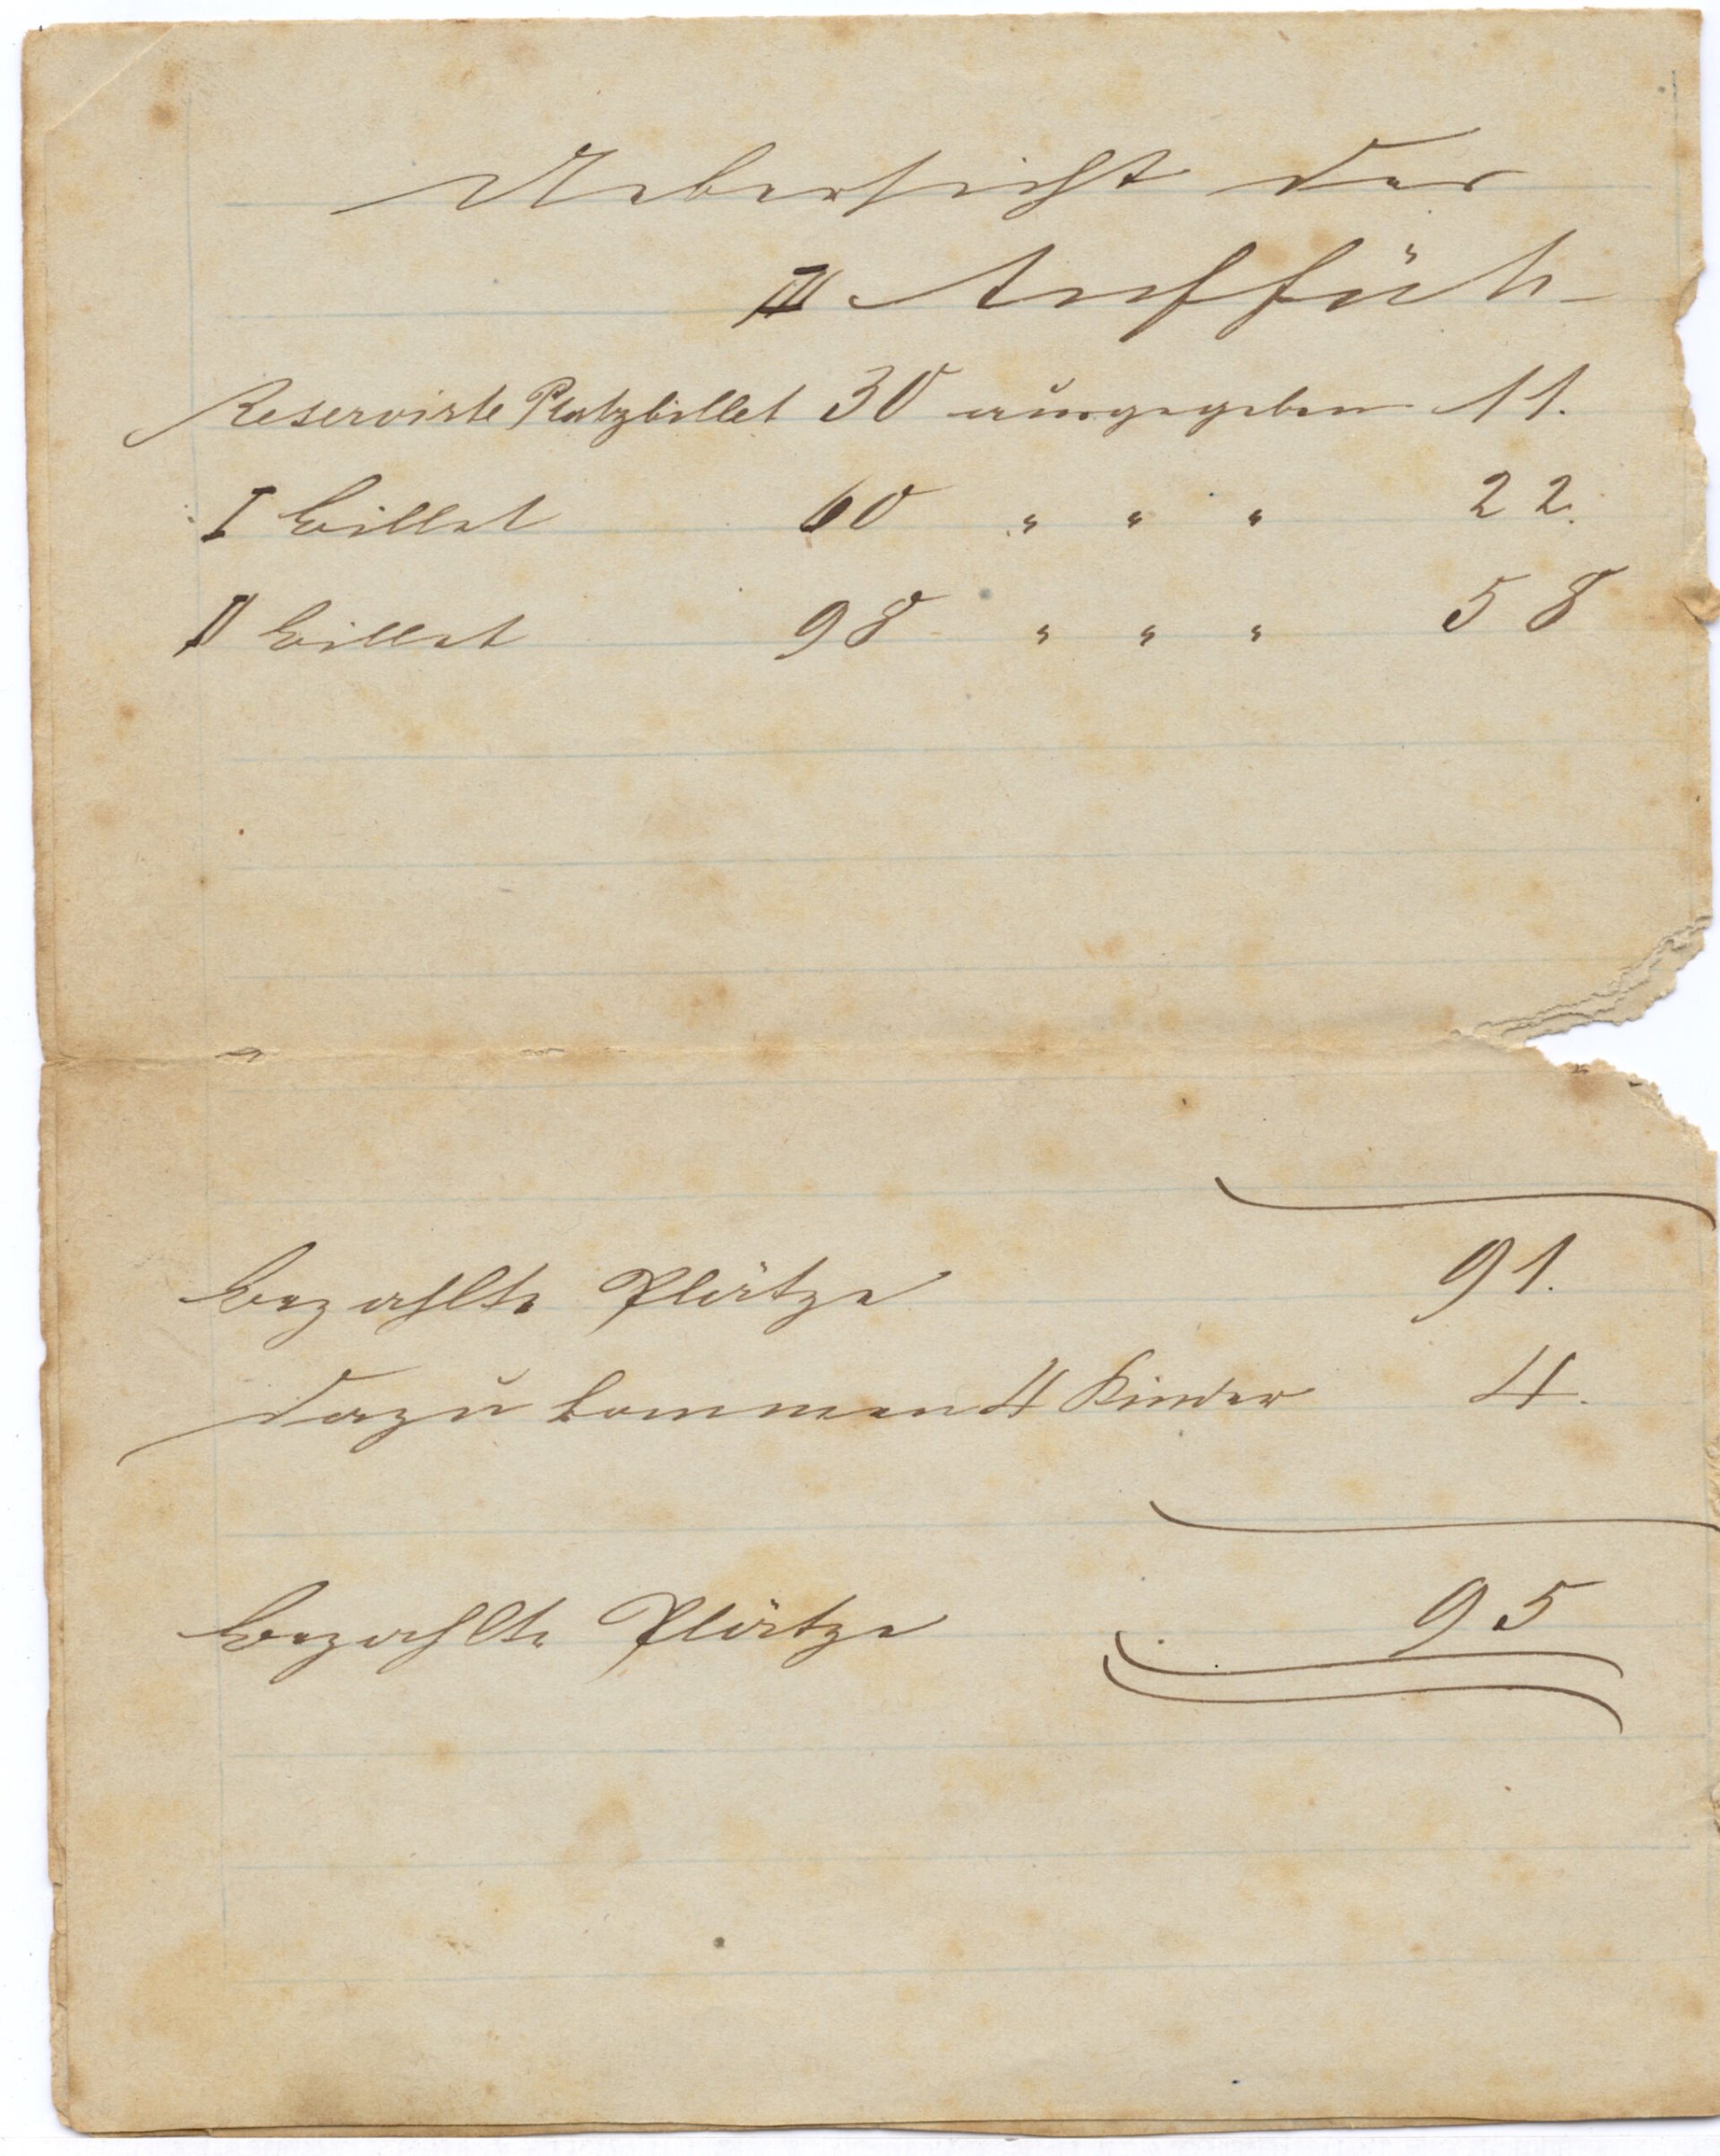 Uebersicht der
III Auffüh-
Reservirte Platzbillet 30 ausgegeben 11.
I Billet 60 " " " 22.
II Billet 98 " " " 58
bezahlte Plätze 91.
dazu kommen 4 Kinder 4.
bezahlte Plätze 95